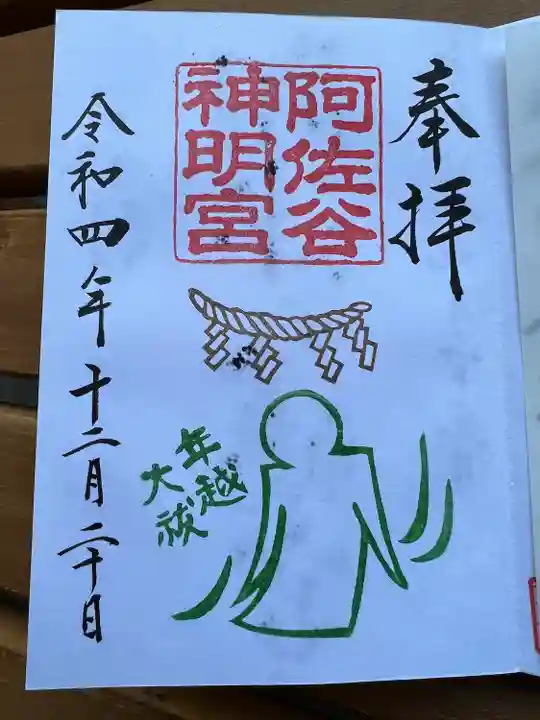 奉拝
阿佐谷
神明宮
年越
大祓
令和四年十二月二十日